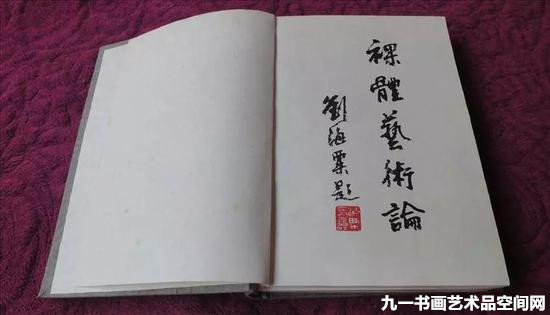 裸體藝術論
劉海粟題
九一书画艺术品空间网